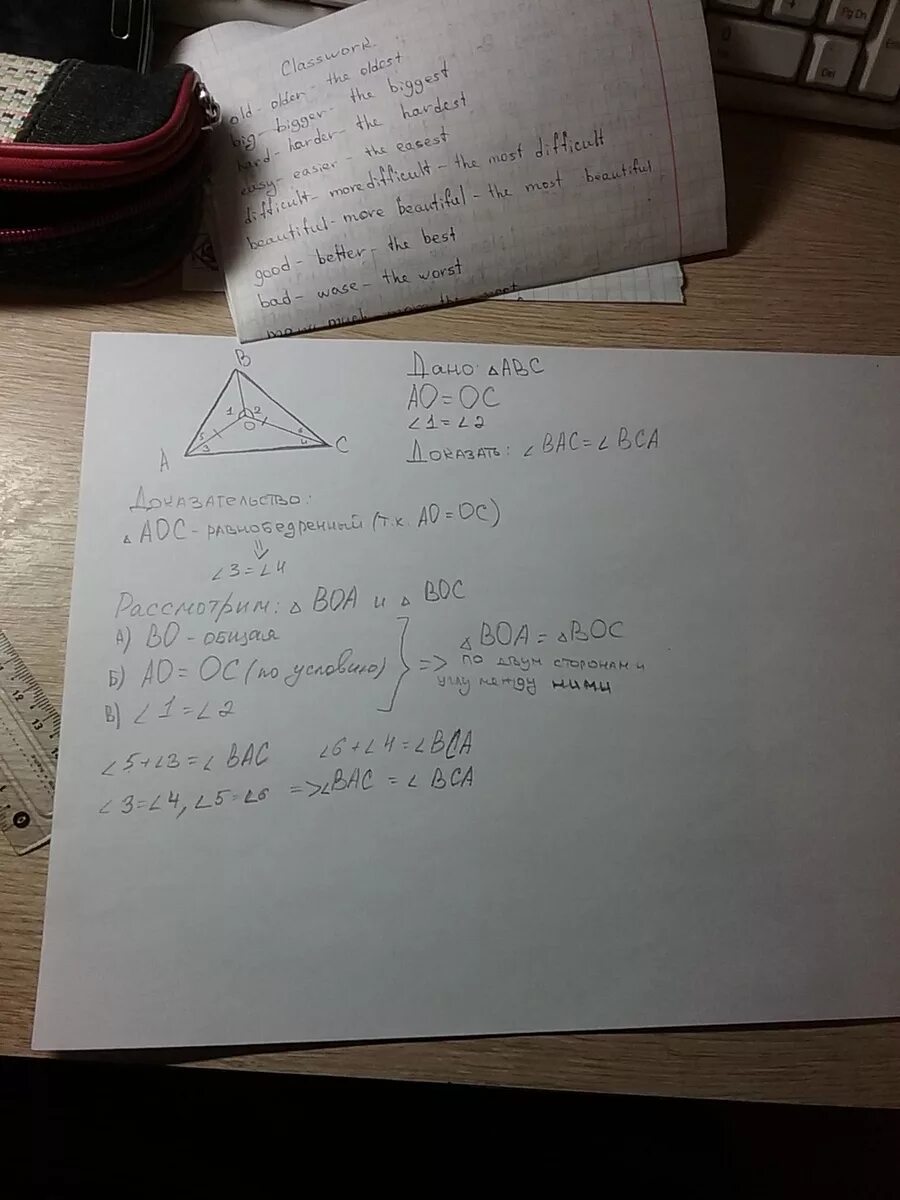 Classwork.
old - older - the oldest
big - bigger - the biggest
hard - harder - the hardest
easy - easier - the easest
difficult - more difficult - the most difficult
beautiful - more beautiful - the most beautiful
good - better - the best
bad - wase - the worst
Pg Dn
Del
B
1 2
O
5 6
3 4
A
C
Дано: △ABC
AO = OC
∠1 = ∠2
Доказать: ∠BAC = ∠BCA
Доказательство:
△AOC - равнобедренный (т.к. AO = OC)
⇓
∠3 = ∠4
Рассмотрим: △BOA и △BOC
А) BO - общая
Б) AO = OC (по условию)
В) ∠1 = ∠2
=> △BOA = △BOC
по двум сторонам и
углу между ними
∠5 + ∠3 = ∠BAC ∠6 + ∠4 = ∠BCA
∠3 = ∠4, ∠5 = ∠6 => ∠BAC = ∠BCA
12
13
0